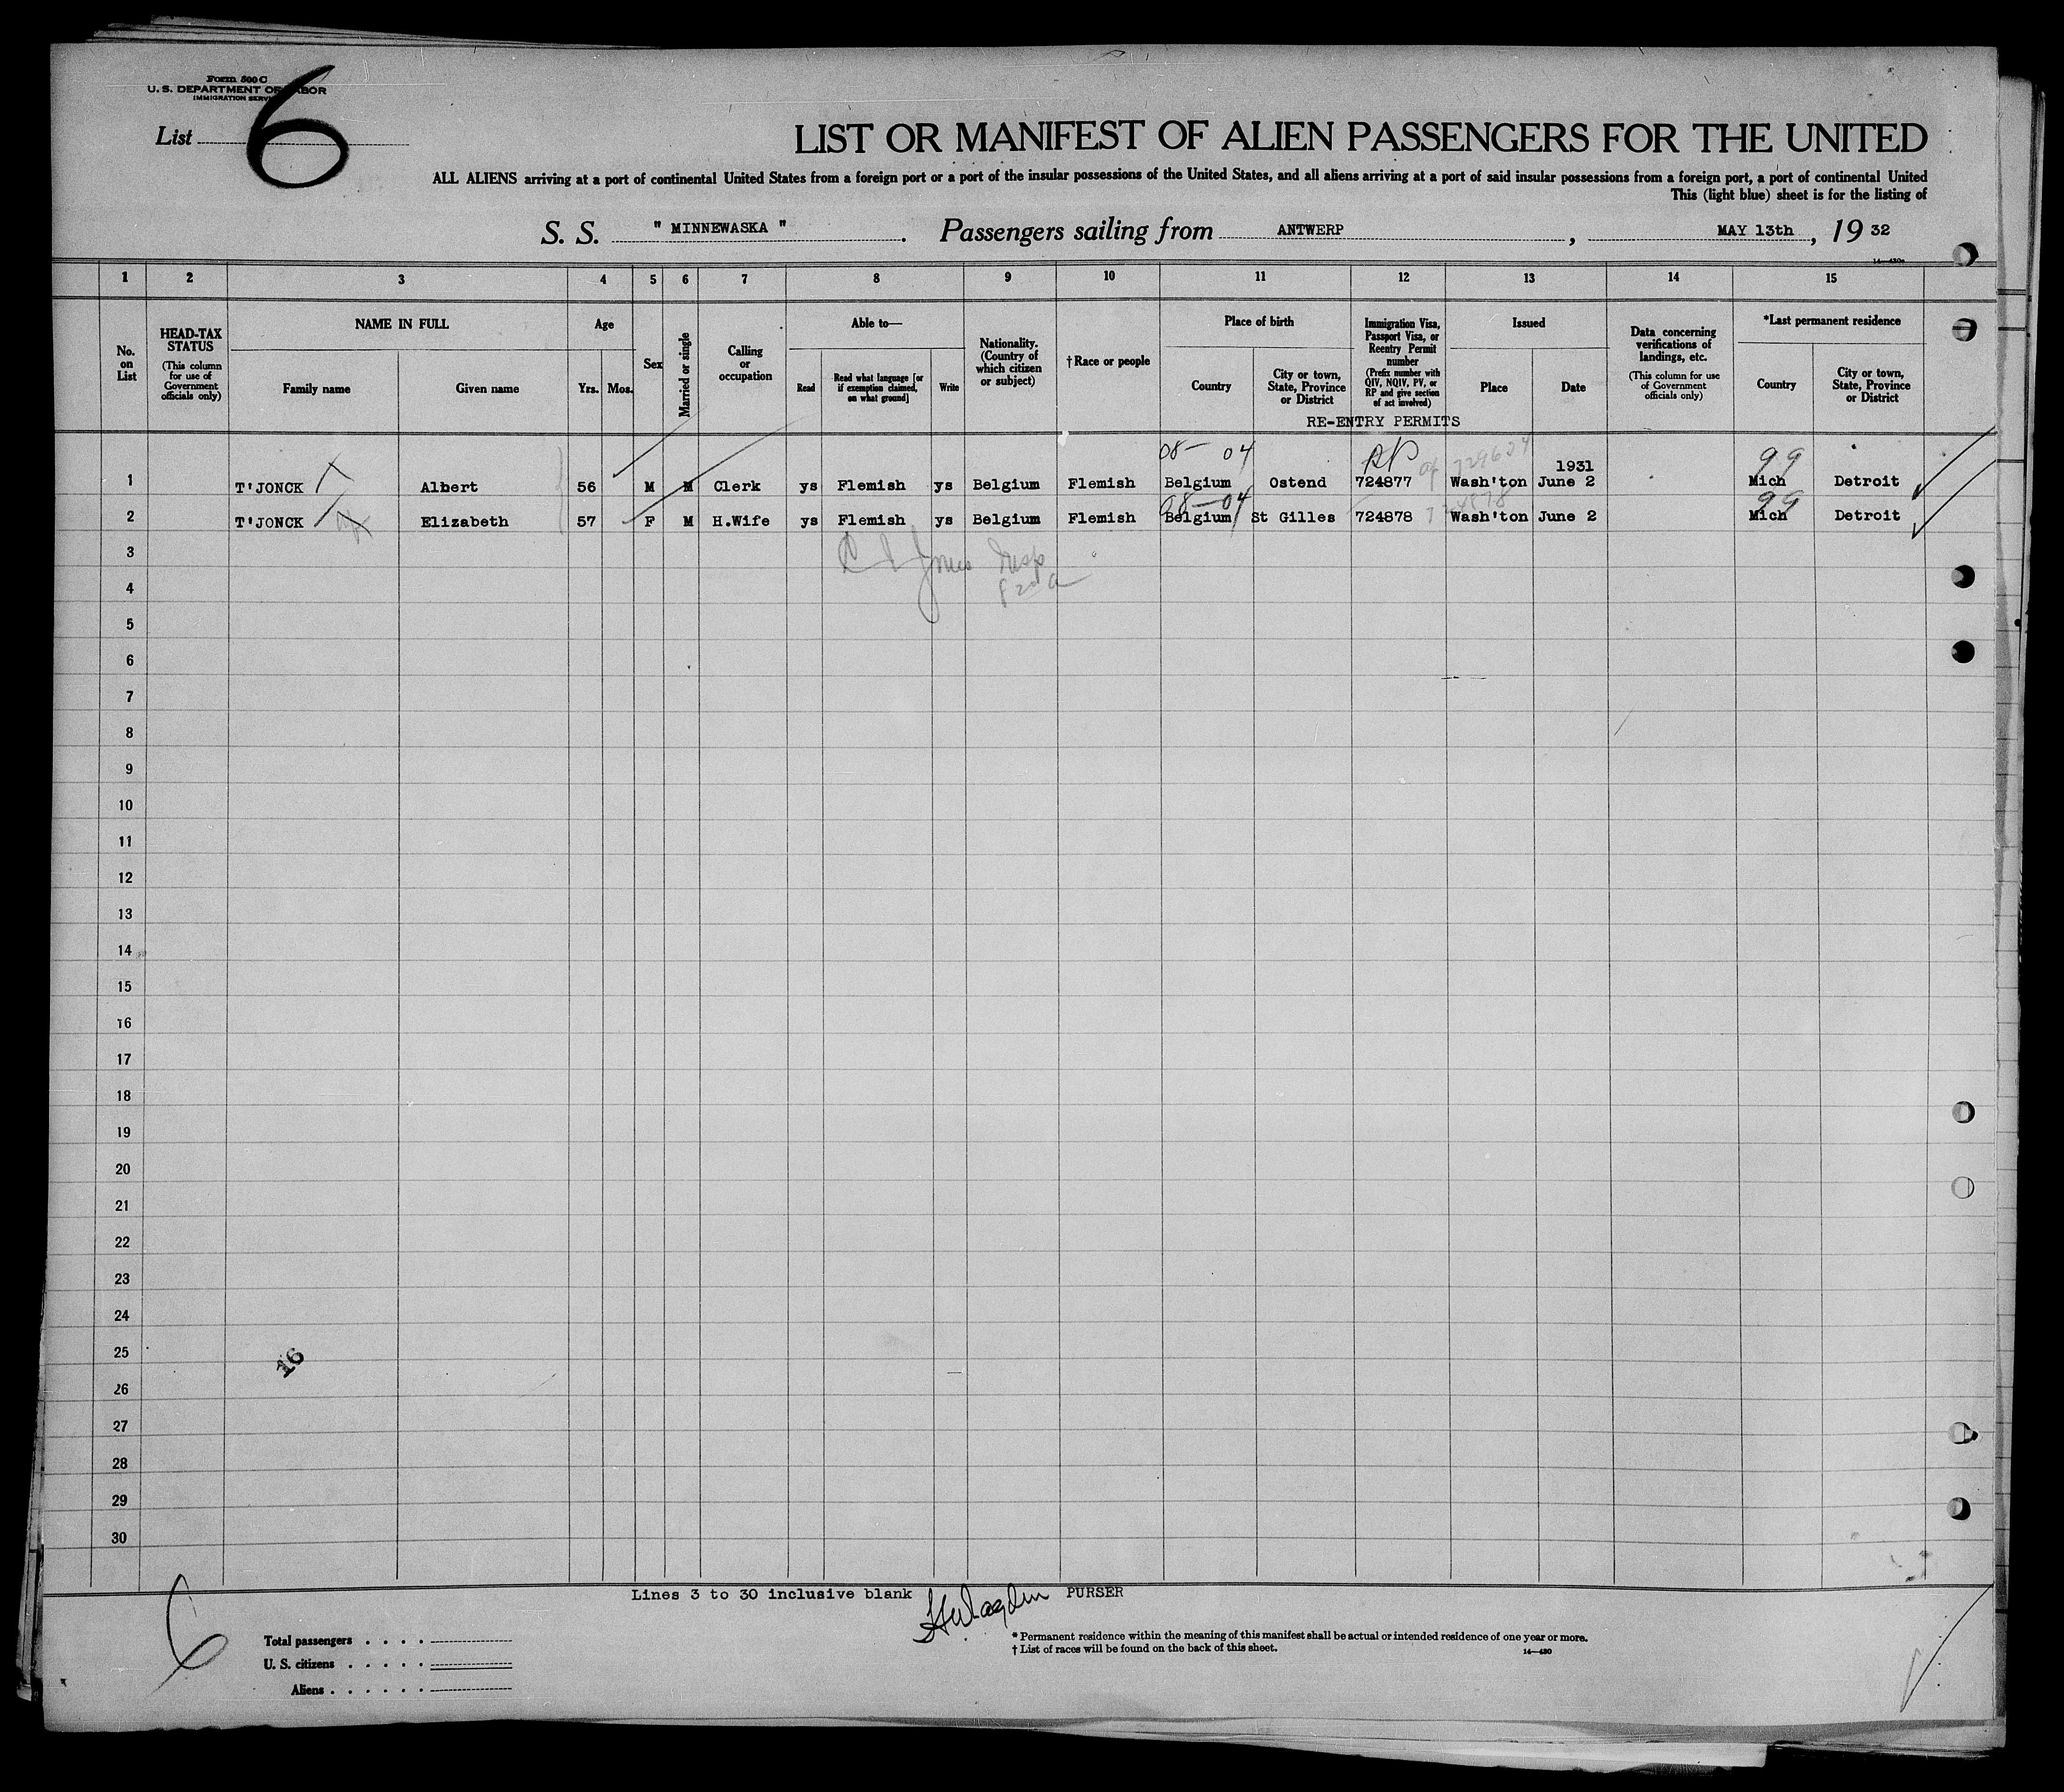 Form 500 C
U. S. DEPARTMENT OF LABOR
IMMIGRATION SERVICE
List 6
LIST OR MANIFEST OF ALIEN PASSENGERS FOR THE UNITED
ALL ALIENS arriving at a port of continental United States from a foreign port or a port of the insular possessions of the United States, and all aliens arriving at a port of said insular possessions from a foreign port, a port of continental United
This (light blue) sheet is for the listing of
S. S. " MINNEWASKA " . Passengers sailing from ANTWERP , MAY 13th , 19 32
14—430a
1 2 3 4 5 6 7 8 9 10 11 12 13 14 15
No. on List
HEAD-TAX STATUS
(This column for use of Government officials only)
NAME IN FULL
Family name
Given name
Age
Yrs. Mos.
Sex
Married or single
Calling or occupation
Able to—
Read
Read what language [or if exemption claimed, on what ground]
Write
Nationality. (Country of which citizen or subject)
†Race or people
Place of birth
Country
City or town, State, Province or District
Immigration Visa, Passport Visa, or Reentry Permit number
(Prefix number with QIV, NQIV, PV, or RP and give section of act involved)
Issued
Place
Date
Data concerning verifications of landings, etc.
(This column for use of Government officials only)
*Last permanent residence
Country
City or town, State, Province or District
RE-ENTRY PERMITS
08— 04 RP 1931 99
1 T'JONCK Albert 56 M M Clerk ys Flemish ys Belgium Flemish Belgium Ostend 724877 Wash'ton June 2 Mich Detroit
08—04 99
2 T'JONCK Elizabeth 57 F M H.Wife ys Flemish ys Belgium Flemish Belgium St Gilles 724878 Wash'ton June 2 Mich Detroit
3
4
5
6
7
8
9
10
11
12
13
14
15
16
17
18
19
20
21
22
23
24
25
16
26
27
28
29
30
Lines 3 to 30 inclusive blank PURSER
6
Total passengers . . . .
U. S. citizens . . . . .
Aliens . . . . . .
* Permanent residence within the meaning of this manifest shall be actual or intended residence of one year or more.
† List of races will be found on the back of this sheet.
14—430